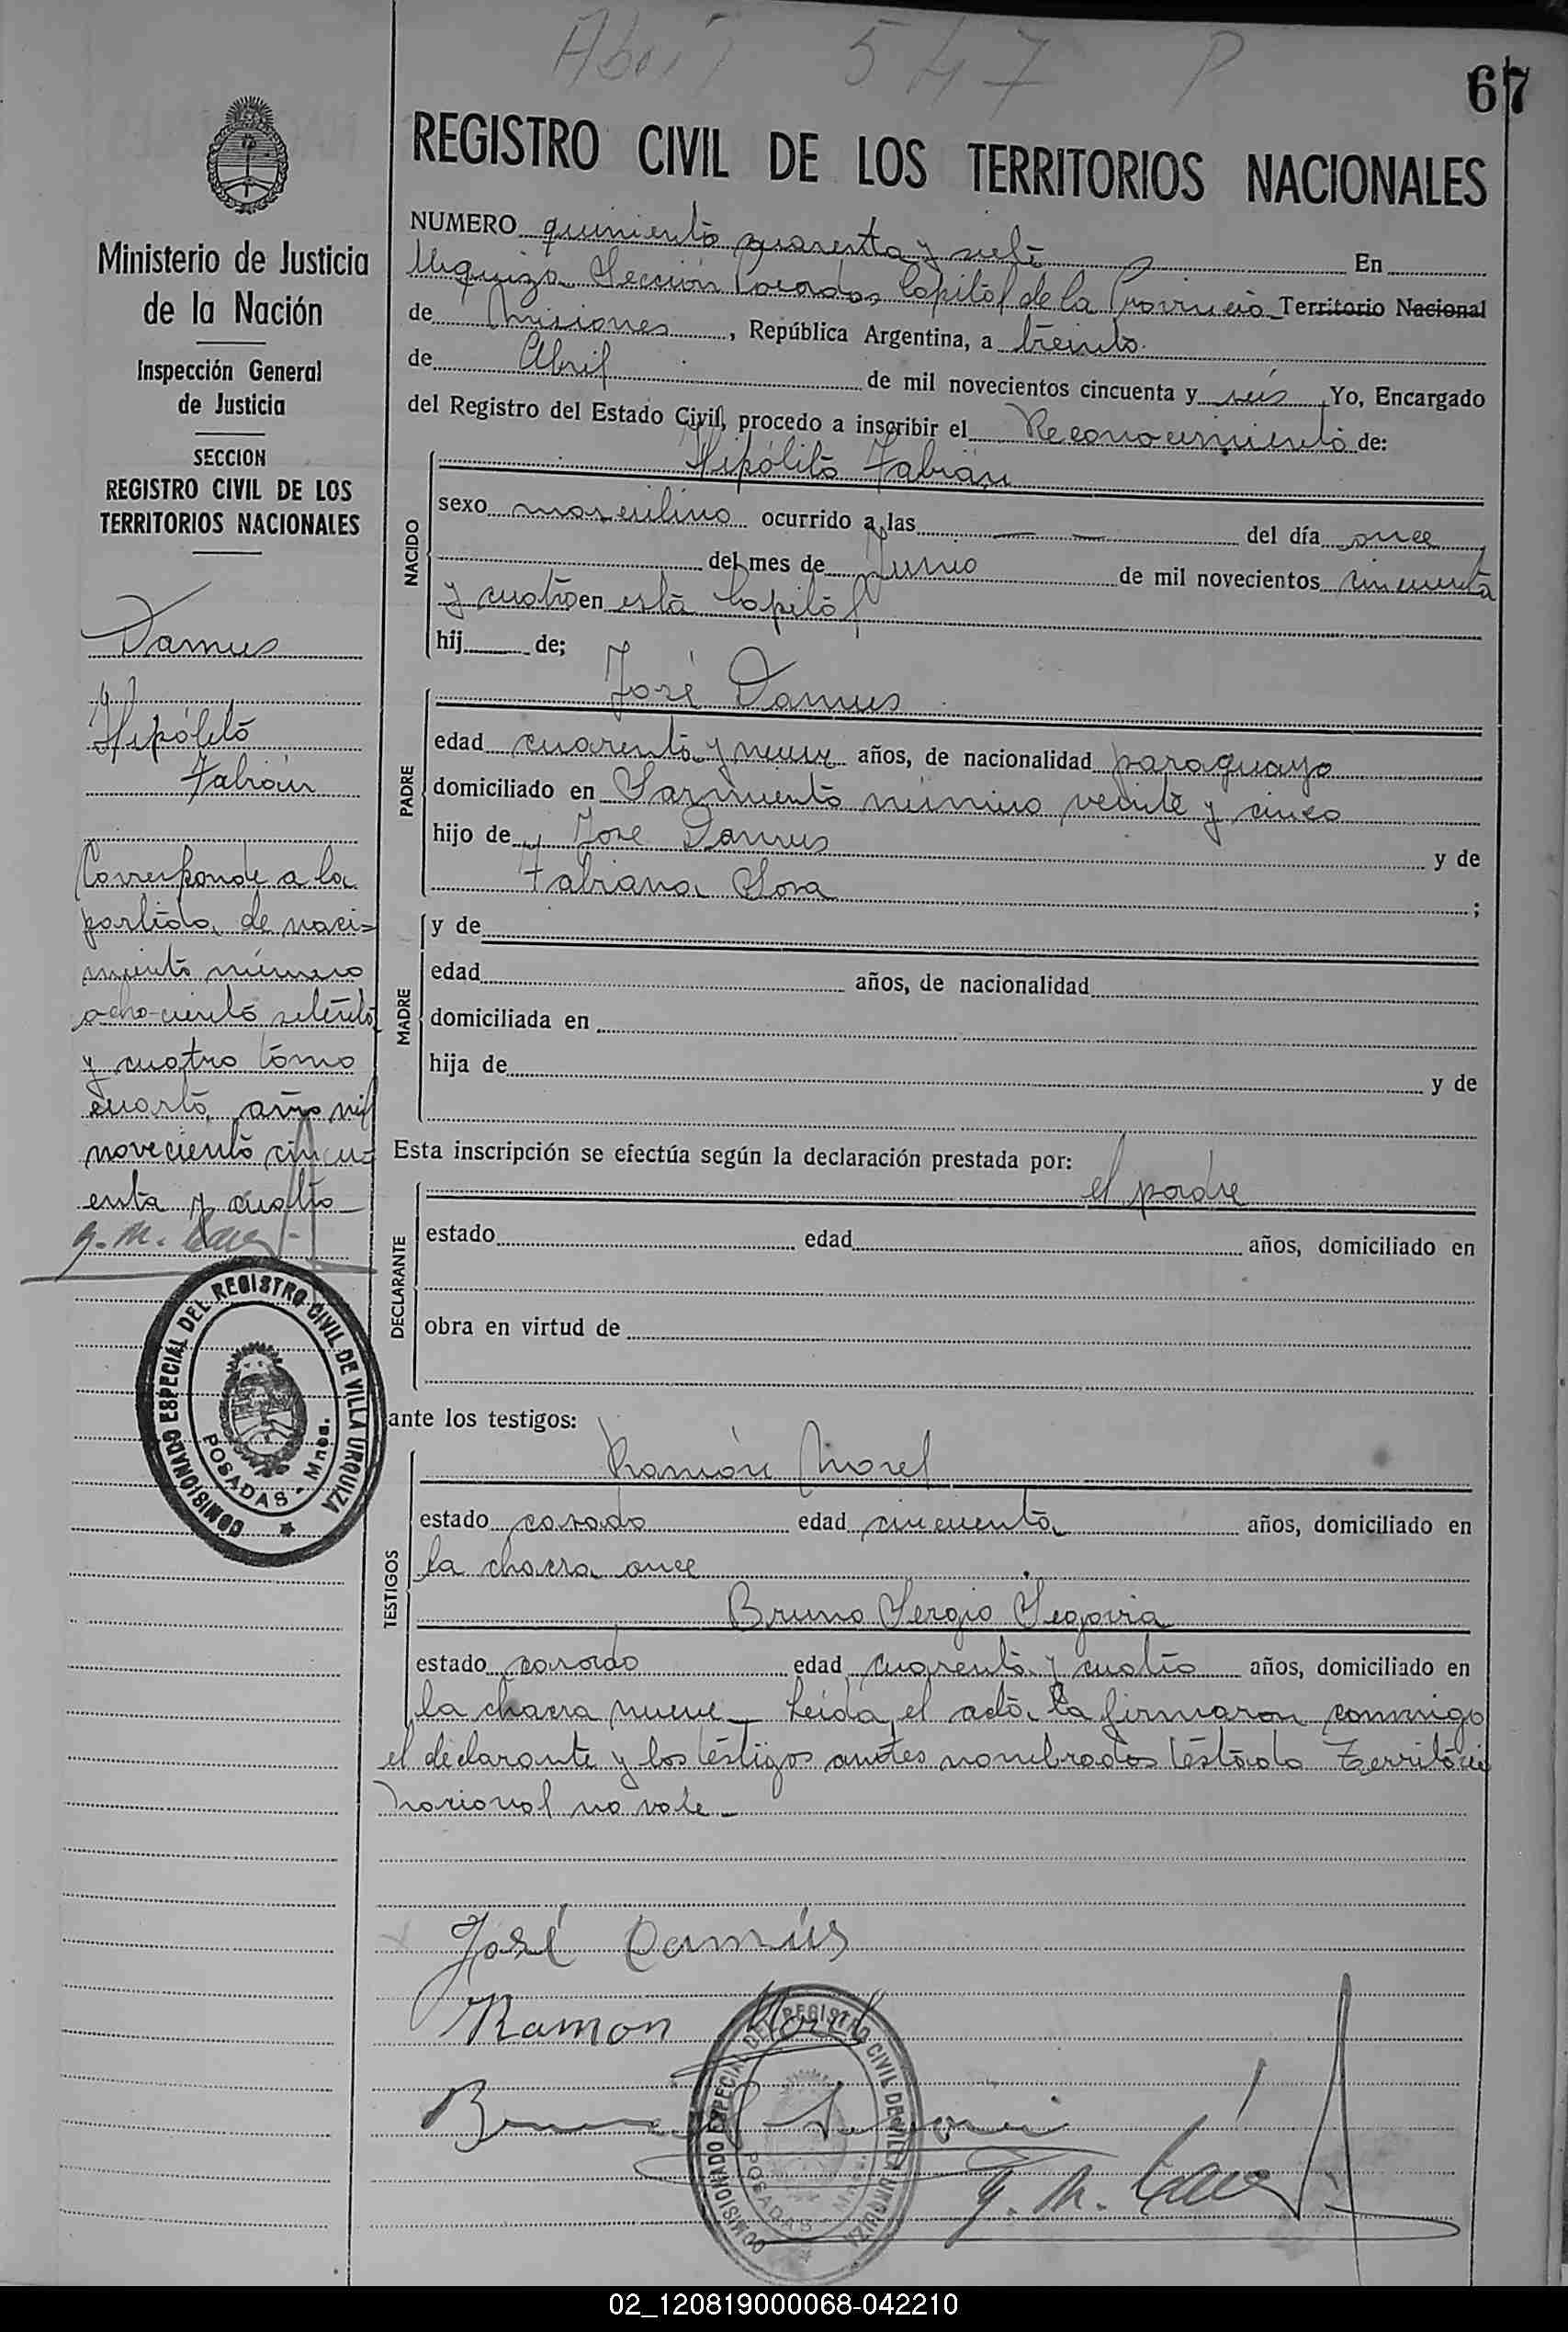 Abril 547 P
67
REGISTRO CIVIL DE LOS TERRITORIOS NACIONALES
Ministerio de Justicia
de la Nación
Inspección General
de Justicia
SECCION
REGISTRO CIVIL DE LOS
TERRITORIOS NACIONALES
Damus
Hipólito
Fabián
Corresponde a la
partida de naci-
miento número
ocho-ciento setenta
y cuatro tomo
cuarto, año mil
novecientos cincu-
enta y cuatro
COMISIONADO ESPECIAL DEL REGISTRO CIVIL DE VILLA URQUIZA
POSADAS - Mnes.
NUMERO quiniento cuarenta y siete En
Urquiza Sección Posadas Capital de la Provincia Territorio Nacional
de Misiones, República Argentina, a treinta
de Abril de mil novecientos cincuenta y seis, Yo, Encargado
del Registro del Estado Civil, procedo a inscribir el Reconocimiento de:
Hipólito Fabián
NACIDO
sexo masculino ocurrido a las — — del día once
del mes de Junio de mil novecientos cincuenta
y cuatro en esta Capital
hij de;
José Damus
PADRE
edad cuarenta y nueve años, de nacionalidad paraguayo
domiciliado en Sarmiento número veinte y cinco
hijo de José Damus y de
Fabiana Sosa ;
MADRE
y de
edad años, de nacionalidad
domiciliada en
hija de y de
Esta inscripción se efectúa según la declaración prestada por:
el padre
DECLARANTE
estado edad años, domiciliado en
obra en virtud de
ante los testigos:
Ramón Morel
TESTIGOS
estado casado edad cincuenta años, domiciliado en
la chacra once
Bruno Sergio Segovia
estado casado edad cuarenta y cuatro años, domiciliado en
la chacra nueve - Leida el acta, la firmaron conmigo
el declarante y los testigos antes nombrados testado Territorio
Nacional no vale -
José Damús
Ramon Morel
COMISIONADO ESPECIAL DEL REGISTRO CIVIL DE VILLA URQUIZA
POSADAS - Mnes.
02_120819000068-042210